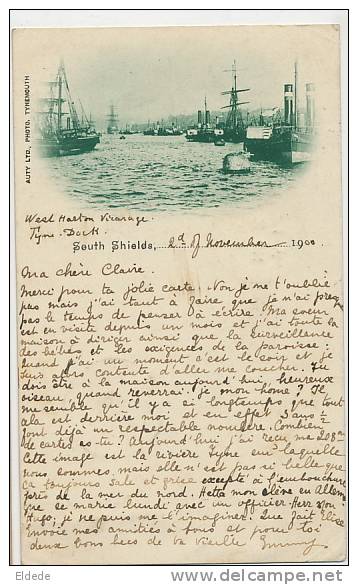 AUTY LTD., PHOTO. TYNEMOUTH
West Harton Vicarage
Tyne-Dock
South Shields, 2d of November 1900
Ma chère Claire.
Merci pour ta jolie carte. Non je ne t'oublie
pas mais j'ai tant à faire que je n'ai presque
pas le temps de penser à écrire. Ma soeur
est en visite depuis un mois et j'ai toute la
maison à diriger ainsi que la surveillance
des bébés et les exigences de la paroisse:
quand j'ai un moment c'est le soir et je
suis alors contente d'aller me coucher. Tu
dois être à la maison aujourd'hui, heureux
oiseau, quand reverrai-je mon home? Il
me semble qu'il y a si longtemps que tout
cela est derrière moi et en effet 3 ans ½
font déjà un respectable nombre. Combien
de cartes as-tu? Aujourd'hui j'ai reçu ma 208me
Cette image est la rivière Tyne sur laquelle
nous sommes, mais elle n'est pas si belle que
ça toujours sale et grise excepté à l'embouchure
près de la mer du nord. Hetta mon élève en Allem.
se marie lundi avec un officier Herr von
Hugo, je ne puis me l'imaginer.
Envoie mes amitiés à tous et pour toi
deux bons becs de ta vieille
Eldede
© delcampe.net